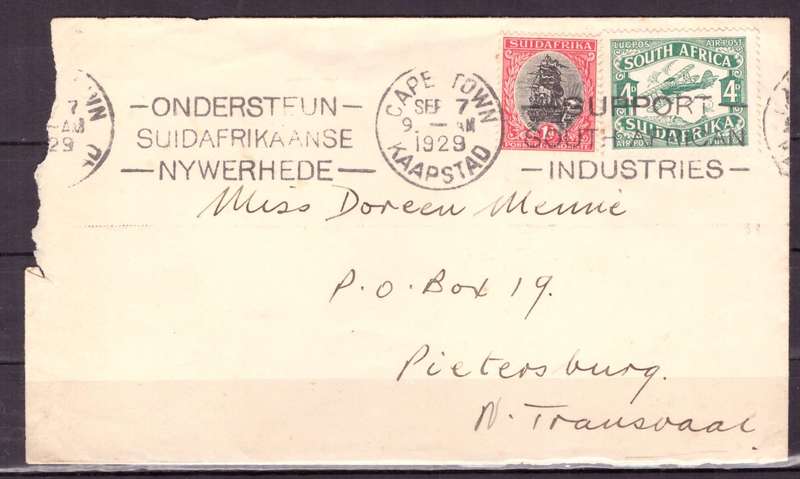 WN
7
AM
29
—ONDERSTEUN—
SUIDAFRIKAANSE
—NYWERHEDE—
CAPE TOWN
SEP 7
9 — AM
1929
KAAPSTAD
SUIDAFRIKA
1
LUGPOS AIR POST
SOUTH AFRICA
4D 4D
SUIDAFRIKA
AIR POST
SUPPORT—
SOUTH AFRICAN
—INDUSTRIES—
Miss Doreen Mennie
P.O. Box 19.
Pietersburg.
N. Transvaal